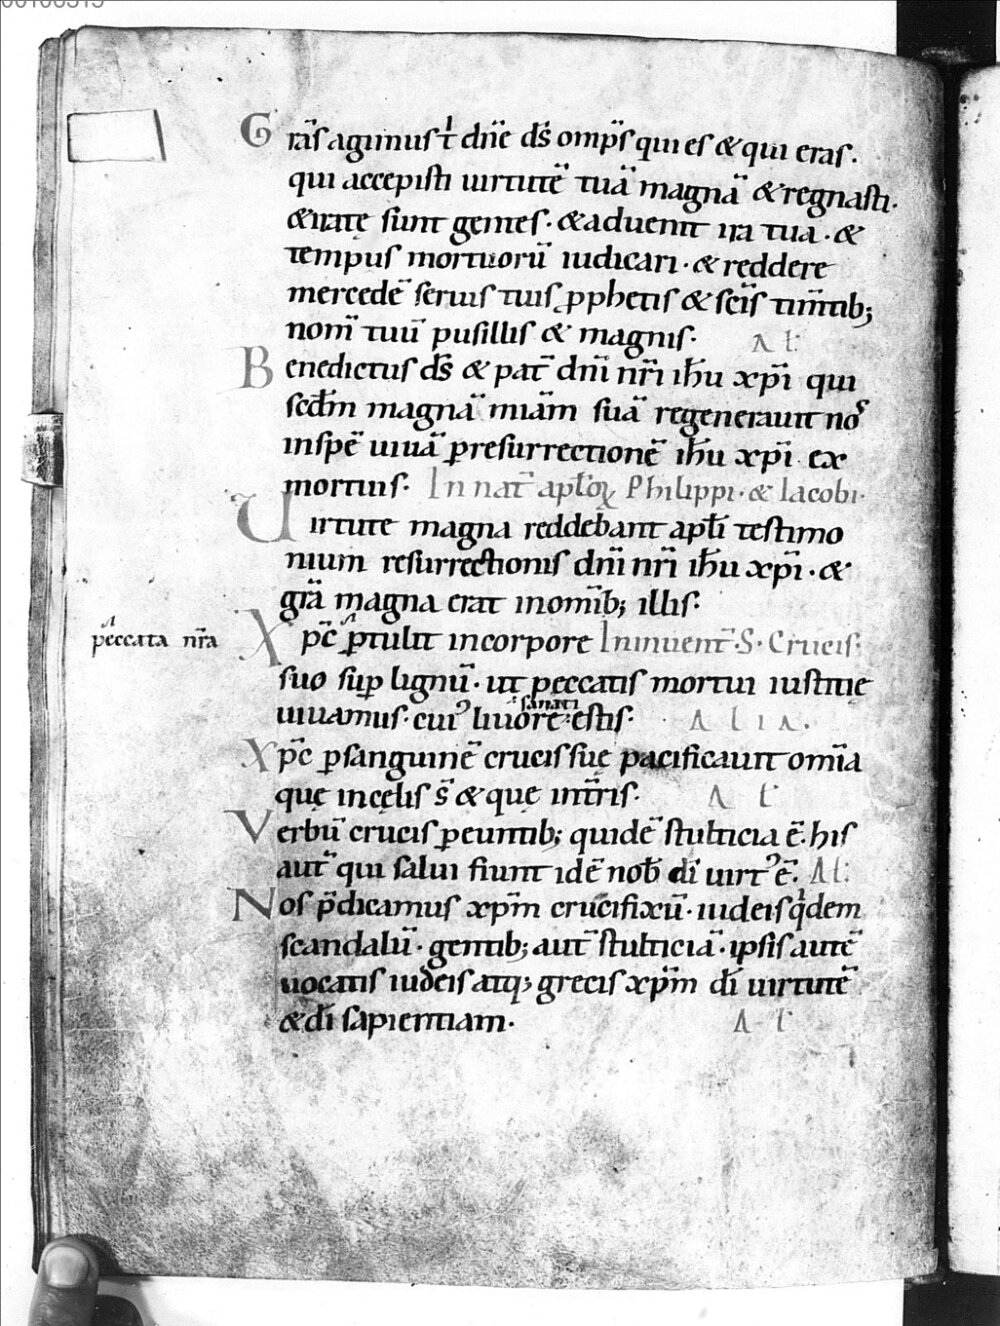 Gr̄as agimus t̄ dn̄e ds̄ omp̄s qui es & qui eras.
qui accepisti uirtutē tuā magnā & regnasti.
& iratę sunt gentes. & aduenit ira tua. &
tempus mortuorū iudicari. & reddere
mercedē seruis tuis ꝓphetis & sc̄is tim̄tib;
nom̄ tuū pusillis & magnis. Al:
Benedictus ds̄ & pat̄ dn̄i nr̄i ih̄u xp̄i qui
scd̄m magnā miām suā regenerauit nos
inspē uiuā ꝑresurrectionē ih̄u xp̄i ex
mortuis. In nat̄ apl̄oꝝ Philippi. & Iacobi.
Uirtute magna reddebant apl̄i testimo
nium resurrectionis dn̄i nr̄i ih̄u xp̄i. &
gr̄a magna erat inom̄ib; illis.
peccata nr̄a
Xp̄c ꝑtulit incorpore Ininuent̄. S. Crucis.
suo suꝑ lignū. ut peccatis mortui iustitie
uiuamus. cui᾽ liuore sanati estis. Alia.
Xp̄c ꝑsanguinē crucis suę pacificauit om̄ia
quę incęlis s̄ & quę int̄ris. Al
Verbū crucis ꝑeuntib; quidē stulticia ē. his
aut̄ qui salui fiunt idē nob̄ dī uirt᾽ ē. Al:
Nos p̄dicamus xp̄m crucifixū. iudeis qdem
scandalū. gentib; aut̄ stulticiā. ipsis autē
uocatis iudeis atq; grecis xp̄m dī uirtutē
& dī sapientiam. Al